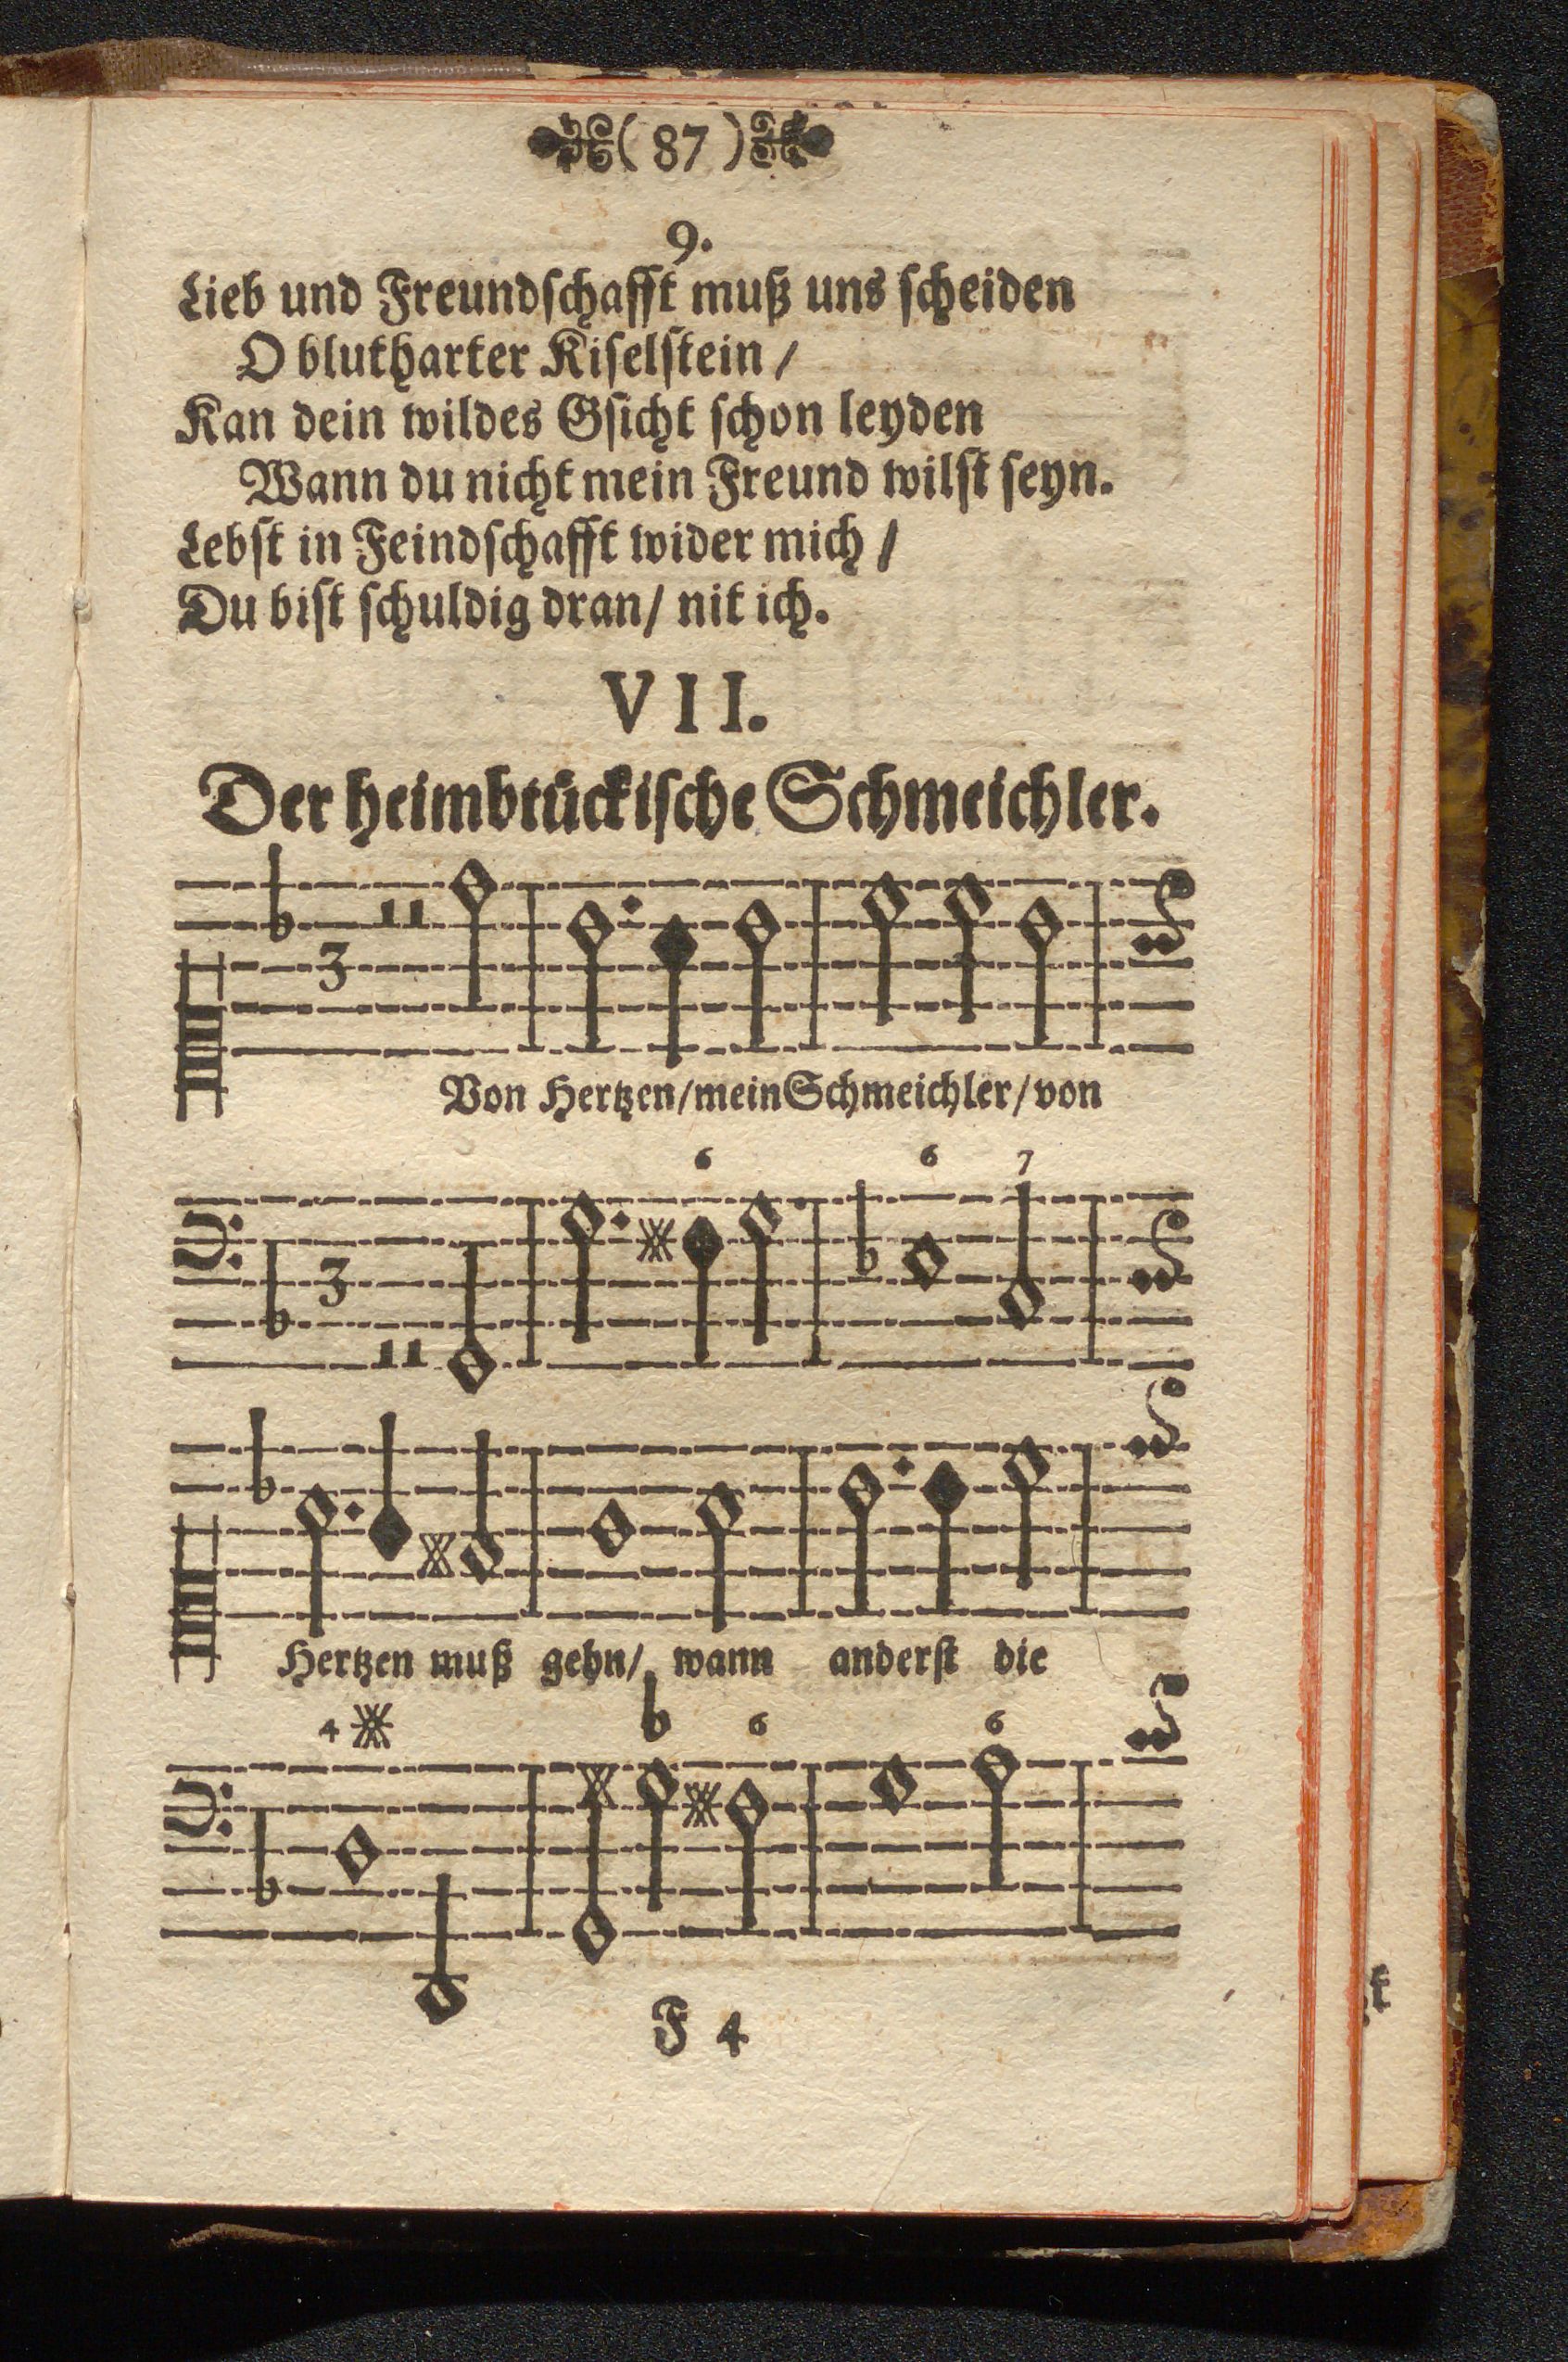 ( 87 )
9.
Lieb und Freundschafft muß uns scheiden
O blutharter Kiselstein /
Kan dein wildes Gsicht schon leyden
Wann du nicht mein Freund wilst seyn.
Lebst in Feindschafft wider mich /
Du bist schuldig dran / nit ich.
VII.
Der heimbtückische Schmeichler.
3
Von Hertzen / mein Schmeichler / von
6 6 7
3
Hertzen muß gehn / wann anderst die
4 6 6
F 4